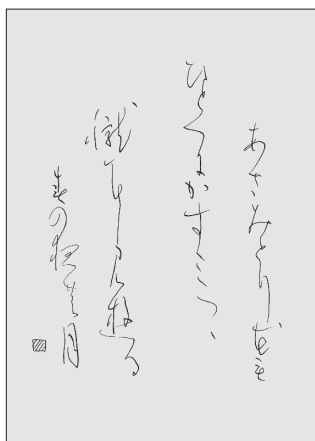 あさみとり花も
ひとつにかすミつゝ
朧に見遊る
春の夜の月